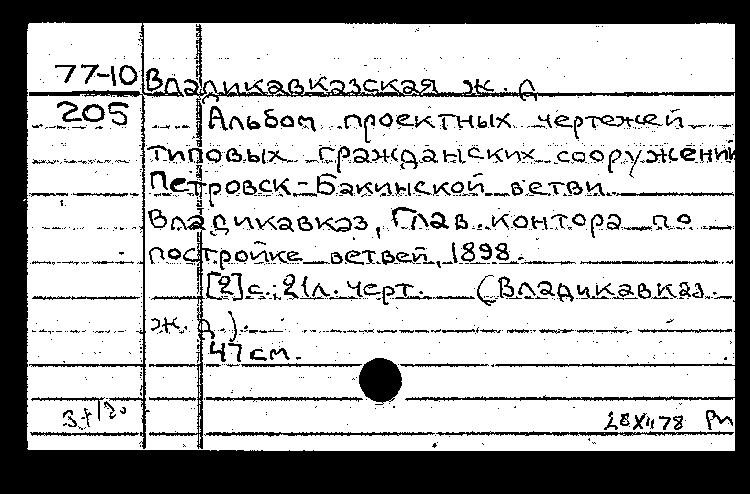 77-10 Владикавказская ж. д
205 Альбом проектных чертежей
типовых гражданских сооружений
Петровск-Бакинской ветви.
Владикавказ, Глав. контора по
постройке ветвей, 1898.
[2]с.; 21л. черт. (Владикавказ.
ж. д).
47 см.